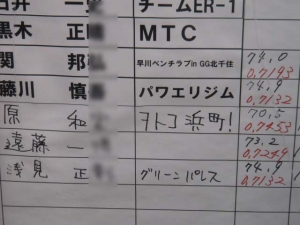 石井 一 チームER-1
黒木 正 MTC
関 邦 早川ベンチラブin GG北千住 74.0 0.7193
藤川 慎 パワエリジム 74.9 0.7132
原 和 ヲトコ浜町! 70.5 0.7453
遠藤 一 73.2 0.7249
浅見 正 グリーンパレス 74.9 0.7132